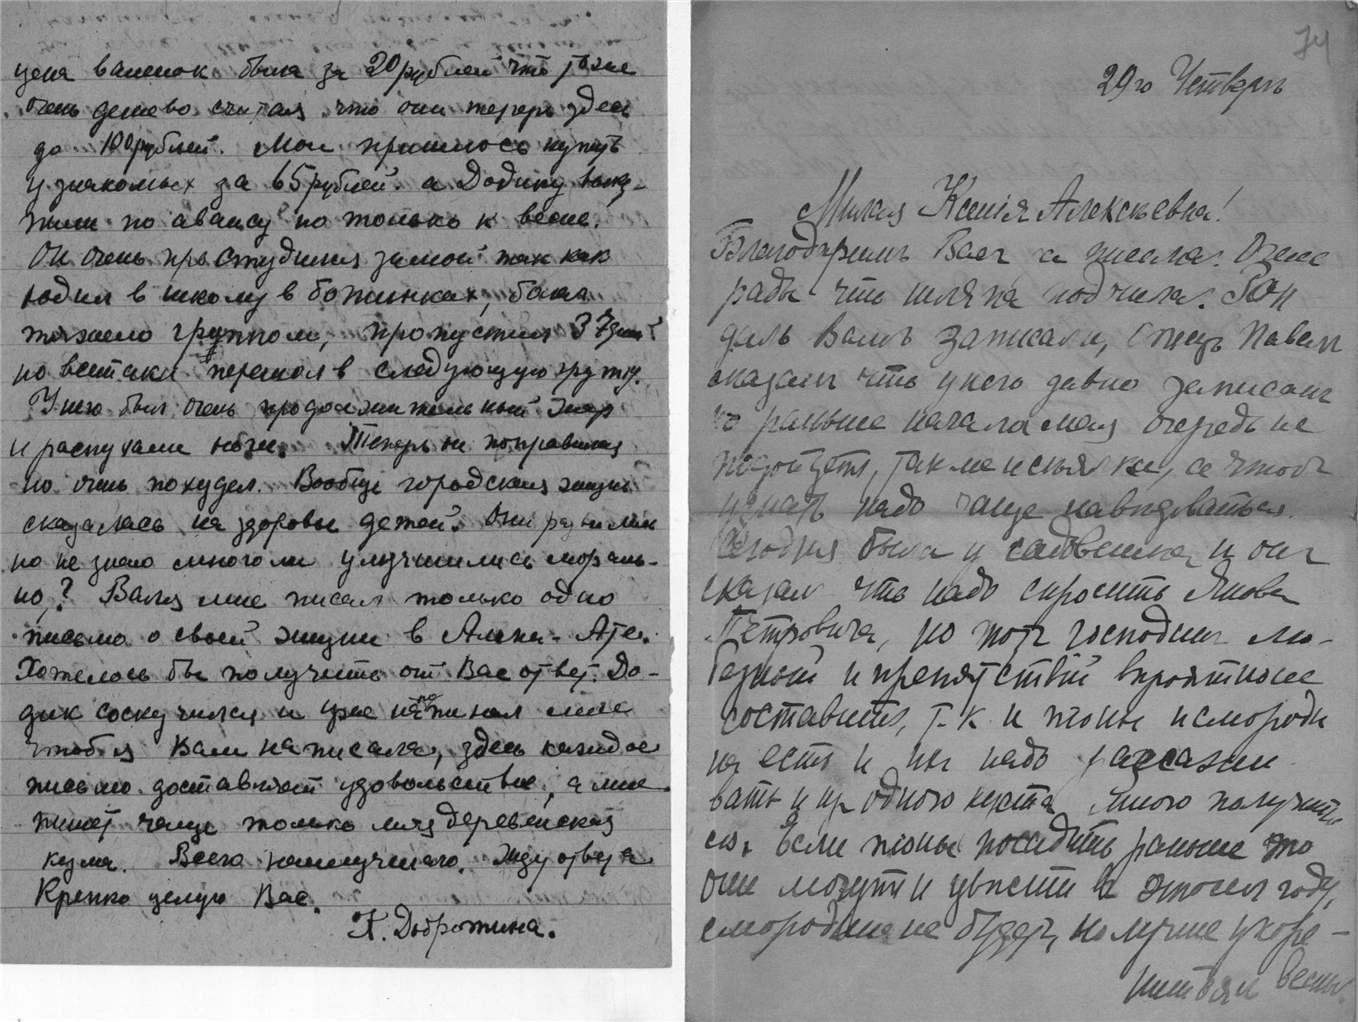 цена валенок была за 20 рублей что тоже
очень дешево считая что они теперь здесь
до 100 рублей. Мои пришлось купить
у знакомых за 65 рублей. а Додику
по авансу но только к весне.
Он очень простудился зимой так как
ходил в школу в ботинках, болел
тяжело гриппом, пропустил 37 дней
но всетаки перешол в следующую группу.
У него был очень продолжительный жар
и распухали ноги. Теперь он поправился
но очень похудел. Вообще городская жизнь
сказалась на здоровьи детей. Они развились
но не знаю много ли улучшились мораль-
но? Валя мне писал только одно
письмо о своей жизни в Алма-Ате.
Хотелось бы получить от Вас ответ. До-
дик соскучился и уже напоминал мне
чтоб я Вам написала, здесь каждое
письмо доставляет удовольствие, а мне
пишет чаще только моя деревенская
кума. Всего наилучшего. Жду ответа
Крепко целую Вас.
Т. Добротина.
74
29го Четверг
Милая Ксенія Алексѣевна!
Благодарим Вас за письма. Очень
рады что шляпа подошла.
Вам записали, отец Павел
сказал что у него давно записано
но раньше начала мая очередь не
подойдет, так мне и сказали, а чтоб
узнать надо чаще наведываться.
Сегодня была у садовника и он
сказал что надо спросить Якова
Петровича, но тот господин лю-
безный и препятствій вѣроятно не
составит, т.к. и піоны и смороди
на есть и их надо рассажи
вать и из одного куста много получит
ся. Если піоны посадить раньше то
они могут и цвѣсти в этом году,
смородина не будет, но лучше укоре-
нит весны.